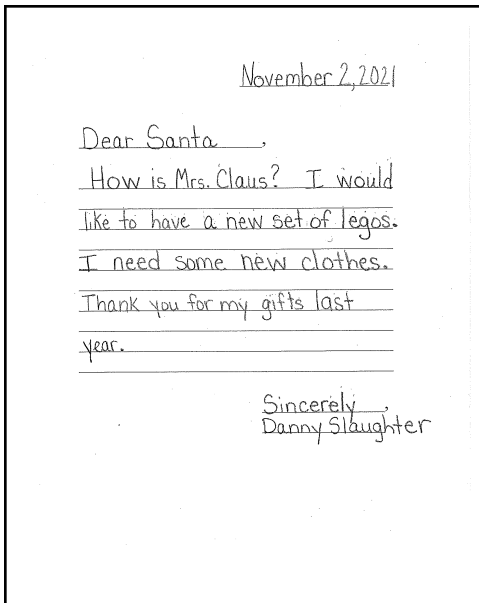 November 2, 2021
Dear Santa ,
How is Mrs. Claus? I would
like to have a new set of legos.
I need some new clothes.
Thank you for my gifts last
year.
Sincerely ,
Danny Slaughter